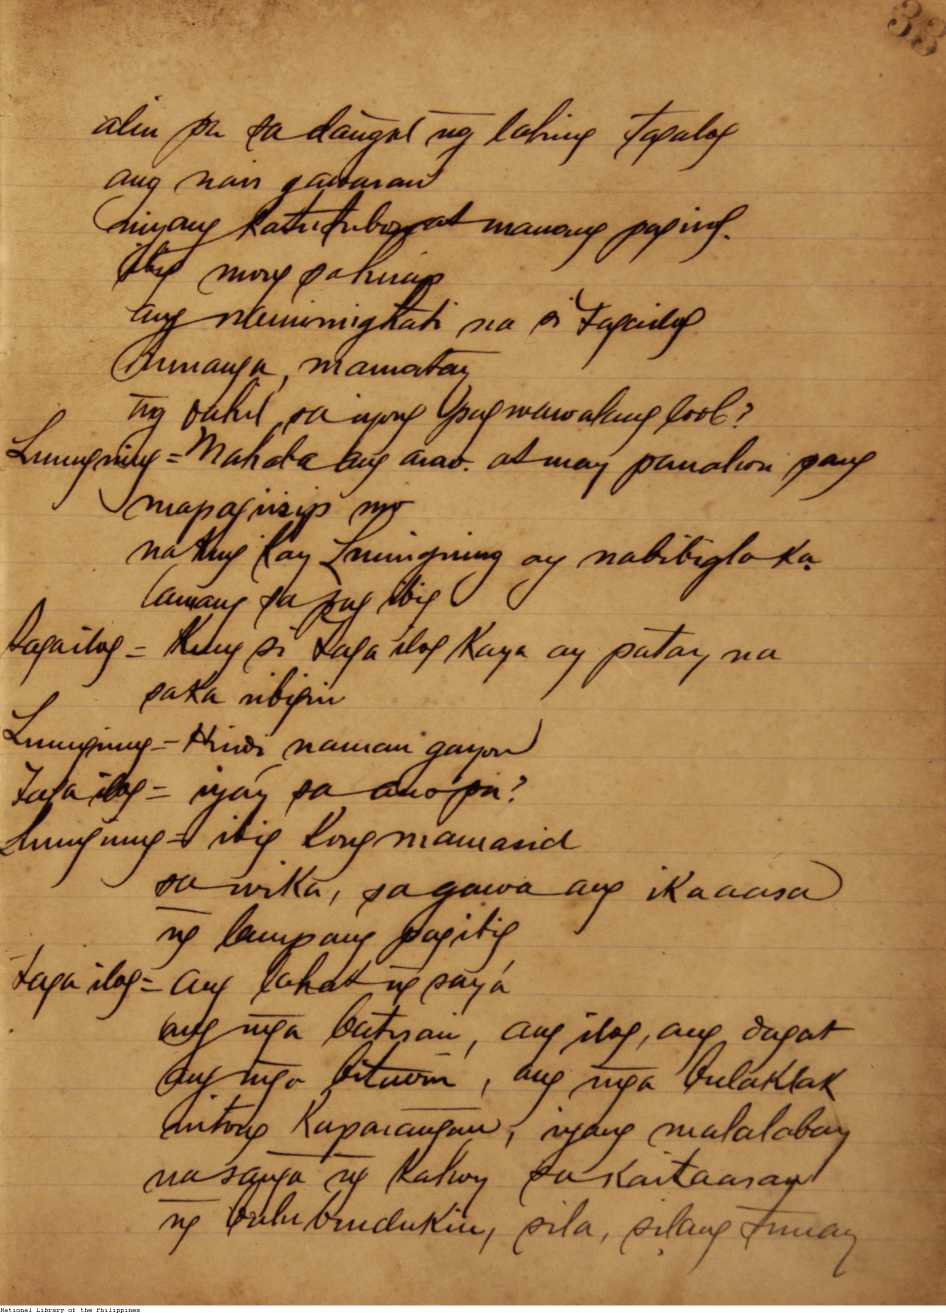 33
alin pa sa dangal ng lahing tagalog
ang nais gawaran
niyang katutubo at manang pagibig.
ibig mong sa hirap
ang naninimighati na si Tagailog
mamatay
ng dahil sa iyong pagwawalang loob?
Luningning = Mahaba ang araw. at may panahon pang
mapagiisip mo
na kung kay Luningning ay nabibigla ka
lamang sa pag ibig
Tagailog = Kung si taga ilog kaya ay patay na
saka iibigin
Luningning = Hindi naman gayon
Taga ilog = iyáy sa ano pa?
Luningning = ibig kong mamasid
sa wika, sa gawa ang ikaaasa
ng lampang pagibig
taga ilog = ang lahat ng saya
ang mga batisan, ang ilog, ang dagat
ang mga bituin, ang mga bulaklak
nitong kaparangan, iyang malalabay
na sanga ng kahoy sa kaitaasan
ng bulubundukin, sila, silang tunay
National Library of the Philippines